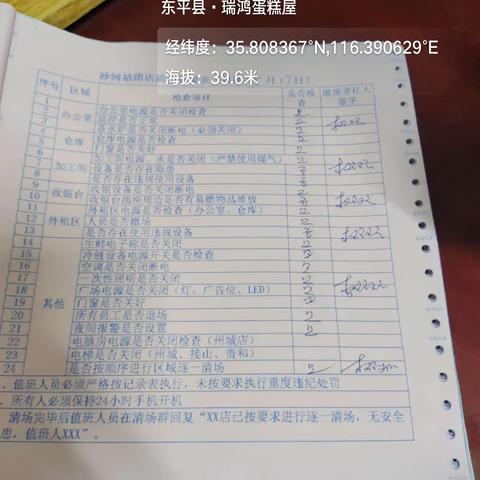 东平县·瑞鸿蛋糕屋
经纬度：35.808367°N,116.390629°E
海拔：39.6米
沙河站闭店 月17日）
序号 区域 检查项目 是否检查 清场责任人签字
1 办公室 办公室电源是否关闭检查
2 监控是否正常
3 茶水炉是否关闭断电（必须关闭）
4 仓库 仓库电源是否检查
5 门窗是否关好
6 加工间 加工间电源、水是否关闭（严禁使用煤气）
7 设备是否存在隐患
8 是否存在违规使用设备
9 收银台 收银设备是否关闭断电
10 收银台插座周边是否有易燃物品堆放
11 外租区 外租区电源是否检查（办公室、仓库）
12 人员是否撤场
13 是否存在使用违规设备
14 其他 生鲜电子称是否关闭
15 冷链设备电源开关是否检查
16 空调是否关闭断电
17 一次性照明是否关闭
18 广场电源是否关闭（灯、广告位、LED）
19 门窗是否关好
20 所有员工是否退场
21 夜间报警是否设置
22 电脑房电源是否关闭检查（州城店）
23 电梯是否关闭（州城、接山、贵和）
24 是否按顺序进行区域逐一清场
、值班人员必须严格按记录表执行，未按要求执行重度违纪处罚
、所有人必须保持24小时手机开机
清场完毕后值班人员在清场群回复“XX店已按要求进行逐一清场，无安全
患，值班人XXX”。